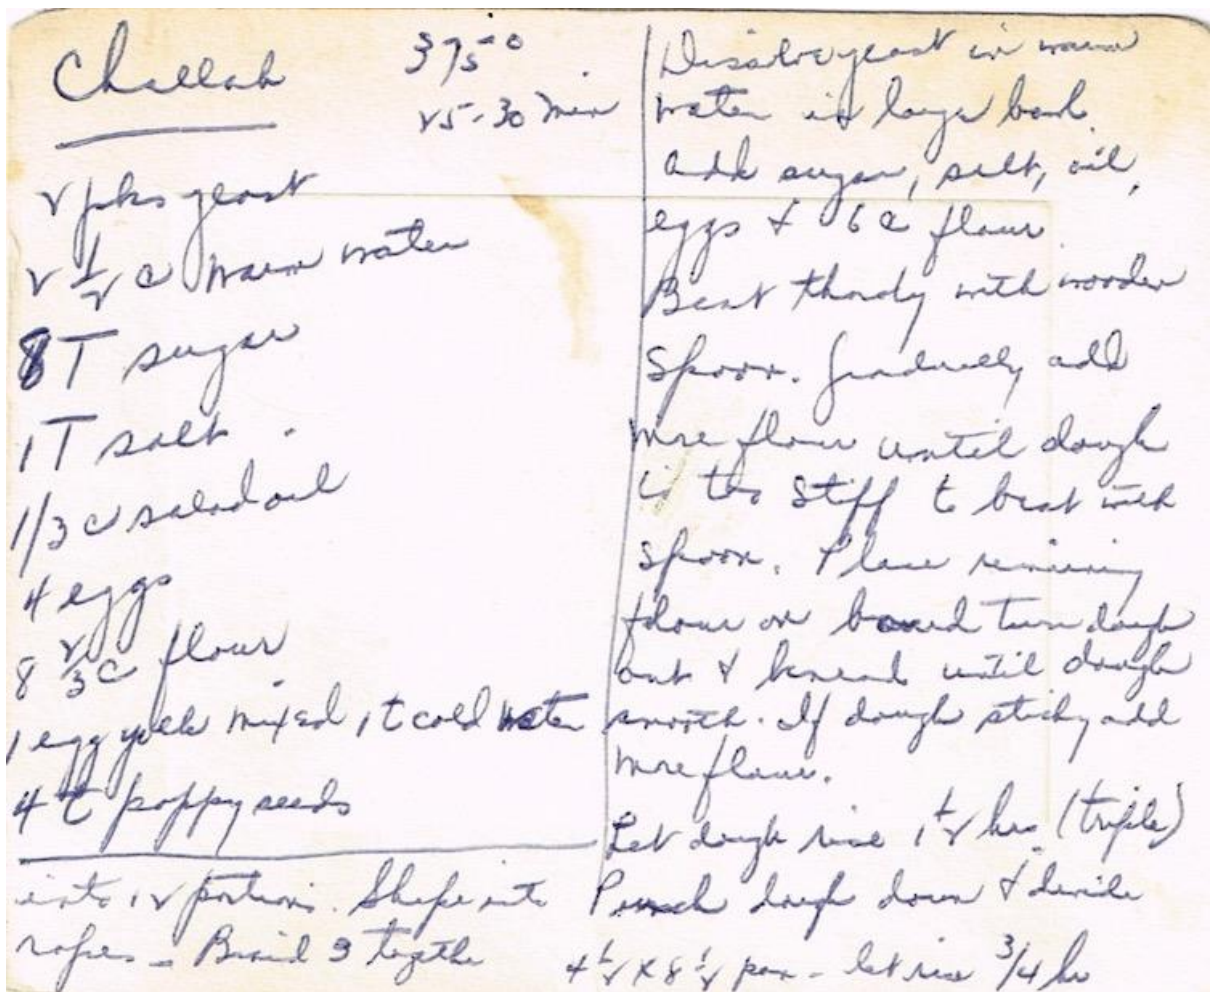 Challah
375°
25-30 min
2 pks yeast
2 1/2 c warm water
8 T sugar
1 T salt.
1/3 c salad oil
4 eggs
8 2/3 c flour
1 egg yolk mixed 1 t cold water
4 t poppy seeds
Disolve yeast in warm
water in large bowl.
add sugar, salt, oil,
eggs & 6 c flour.
Beat thordy with wooden
spoon. Gradually add
more flour until dough
is too stiff to beat with
spoon. Place remaining
flour on board turn dough
out & knead until dough
smooth. If dough sticky add
more flour.
Let dough rise 1 1/2 hrs. (triple)
Punch dough down & divide
into 12 portions. Shape into
ropes - Braid 3 togethe
4 1/2 x 8 1/2 pan - let rise 3/4 hr